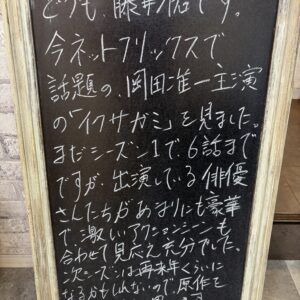 どうも、藤井佑です。
今ネットフリックスで
話題の、岡田准一主演
の「イクサガミ」を見ました。
まだシーズン1で、6話まで
ですが、出演している俳優
さんたちがあまりにも豪華
で、激しいアクションシーンも
合わせて見応え充分でした。
次シーズンは再来年くらいに
なるかもしれないので、原作を